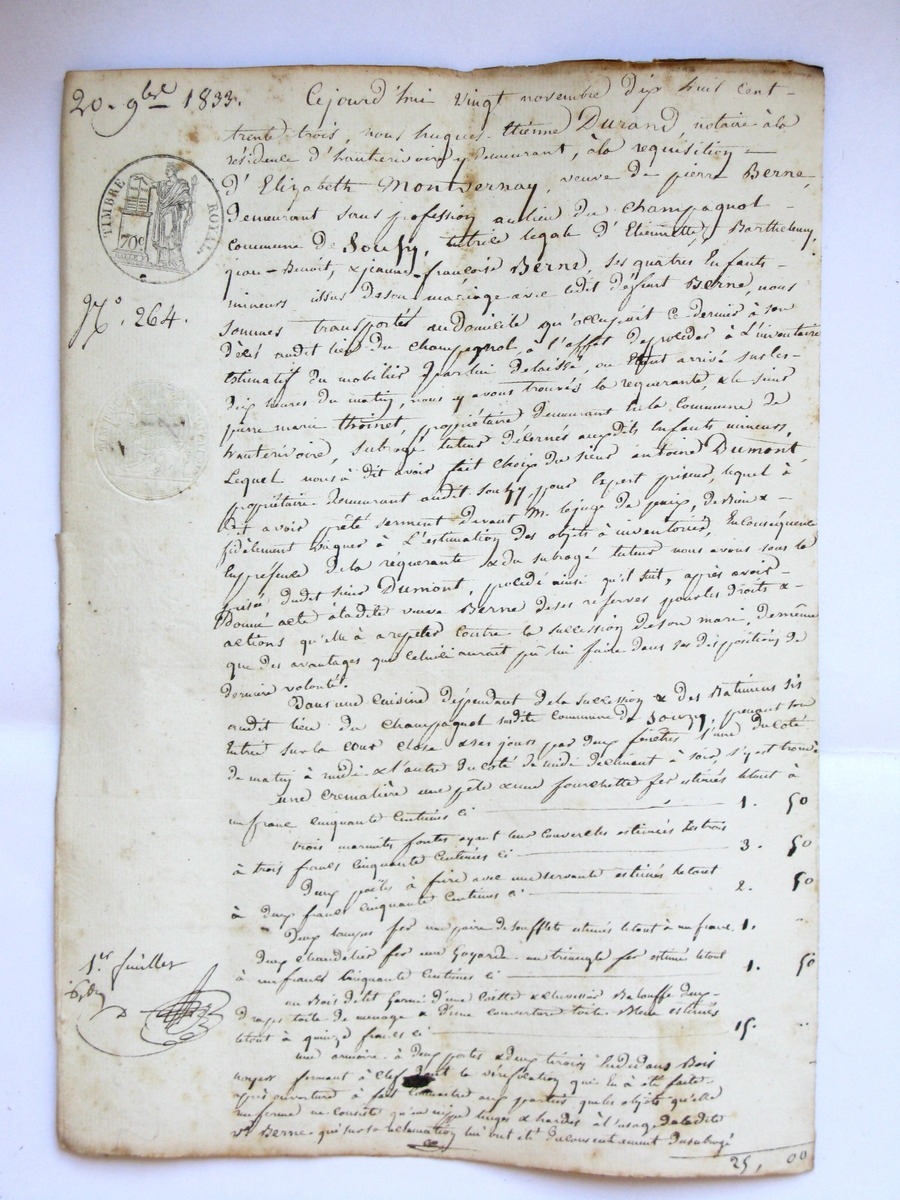 20. 9bre 1833.
TIMBRE ROYAL
70c
No. 264.
1er feuillet
Cejourd'hui vingt novembre dix huit cent
trente trois, nous hugues Etienne Durand, notaire à la
résidence d'hauterivoire y demeurant, à la requisition
d'Elizabeth Montvernay, veuve de pierre Berne,
demeurant sans profession au lieu du champagnol
commune de Souzy, tutrice legale d'Etiennette, Barthelemy,
jean-Benoit, & jeanne-françoise Berne, ses quatres Enfants
mineurs issus de son mariage avec ledit défunt Berne, nous
sommes transportés au domicile qu'occupait ce dernier à son
décès audit lieu du champagnol, à l'effet de procéder à L'inventaire
Estimatif du mobilier par lui delaissé, ou Etant arrivé sur les
dix heures du matin, nous y avons trouvés la requerante, & le sieur
pierre marie thoinet, propriétaire demeurant en la commune de
hauterivoire, subrogé tuteur décerné auxdits Enfants mineurs,
Lequel nous à dit avoir fait choix du sieur antoine Dumont,
propriétaire demeurant audit Souzy, pour Expert priseur, lequel à
dit avoir prêté serment devant M. le juge de paix, de bien &
fidélement vaquer à L'estimation des objets à inventorier, En conséquence
En présence de la réquerante & du subrogé tuteur nous avons sous la
prisée dudit sieur Dumont, procédé ainsi qu'il suit, après avoir
Donné acte à ladite veuve Berne de ses réserves pour les droits &
actions qu'elle à à repeter contre la succession de son mari, de même
que des avantages que celui-ci aurait pû lui faire dans ses dispositions de
derniere volonté.
Dans une cuisine dépendant de la succession & des Batimens sis
audit lieu du champagnol susdite commune de Souzy, prenant son
Entrée sur la cour close & ses jours par deux fenêtres l'une du coté
de matin à midi & l'autre du coté de midi declinant à soir, s'y est trouvé
une cremalière une pêle & une fourchette fer estimés letout à
un franc cinquante Centimes ci 1. 50
trois marmites fontes ayant leur couvercles estimées les trois
à trois francs cinquante Centimes ci 3. 50
Deux poëles à frire avec une servante estimés letout
à deux francs cinquante Centimes ci 2. 50
Deux lampes fer une paire de soufflets estimés letout à un franc. 1. "
Deux chandelier fer une Goyarde un triangle fer estimé letout
à un francs Cinquante Centimes ci 1. 50
un Bois de lit Garni d'une &
draps toile de menage & d'une couverture toile estimés
letout à quinze francs ci 15. "
une armoire à deux portes & deux tiroirs dans Bois
noyer fermant à clef dont la vérification qui en à été faite
après ouverture à fait connaitre aux parties que les objets qu'elle
renferme ne consiste qu'en linges & hardes à l'usage de ladite
ve Berne qui sur sa reclamation lui ont été du consentement du subrogé
25, 00